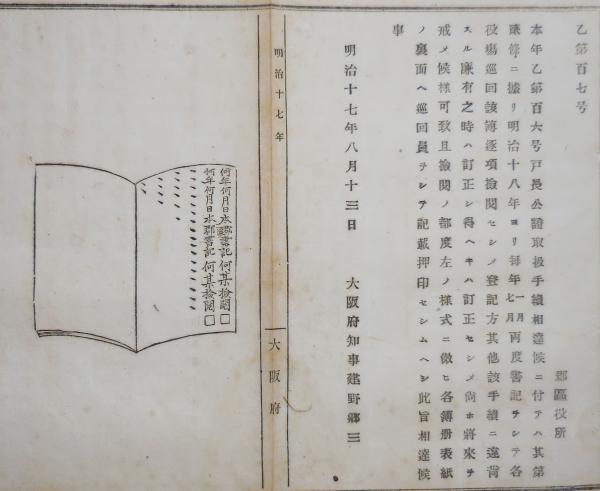 乙第百七号
郡區役所
本年乙第百六号戸長公證取扱手續相達候ニ付テハ其第
貳條ニ據リ明治十八年ヨリ毎年一月七月両度書記ヲシテ各
役塲巡回該簿逐項撿閲セシメ登記方其他該手續ニ違背
スル廉有之時ハ訂正シ得ヘキハ訂正セシメ尚ホ將來ヲ
戒メ候様可致且撿閲ノ都度左ノ様式ニ倣ヒ各簿册表紙
ノ裏面ヘ巡回員ヲシテ記載押印セシムヘシ此旨相達候
事
明治十七年八月十三日
大阪府知事建野郷三
明治十七年
大阪府
何年何月日本郡書記何某撿閲
何年何月日本郡書記何某撿閲